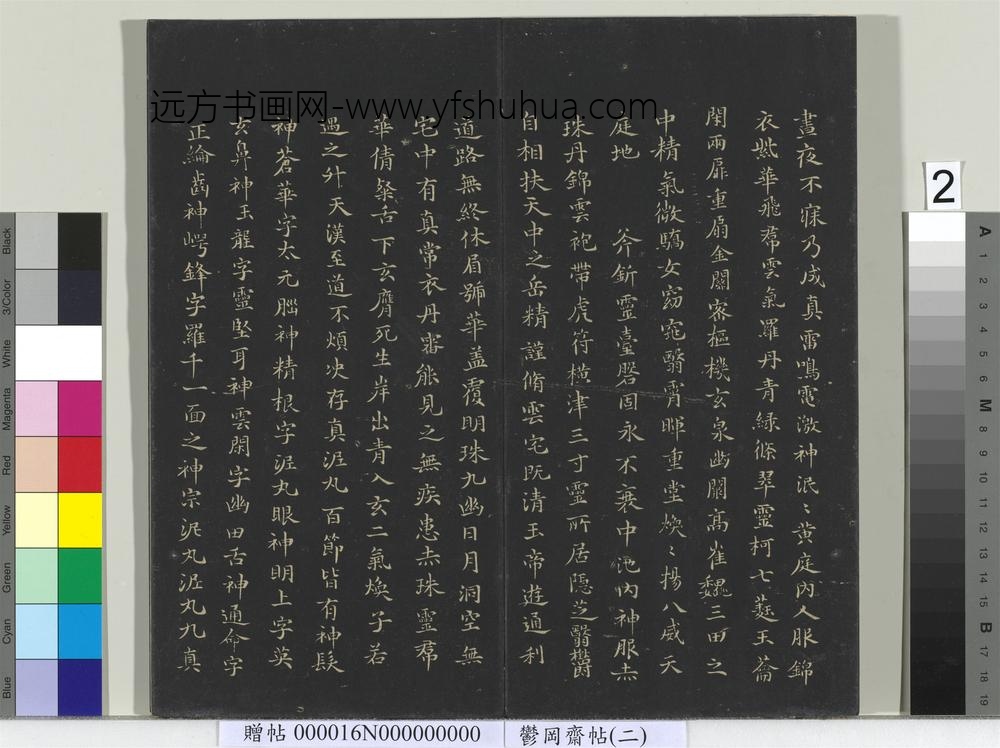 晝夜不寐乃成真雷鳴電激神泯〻黄庭內人服錦
衣紫華飛帬雲氣羅丹青緑條翠靈柯七蕤玉蘥
閑兩扉重扇金關密樞機玄泉幽闕高崔巍三田之
中精氣微驕女窈窕翳霄暉重堂煥〻揚八威天
庭地 斧釿靈臺磐固永不衰中池內神服赤
珠丹錦雲袍帶虎符橫津三寸靈所居隱芝翳欝
自相扶天中之岳精謹脩雲宅既清玉帝遊通利
道路無終休眉號華盖覆明珠九幽日月洞空無
宅中有真常衣丹審能見之無疾患赤珠靈帬
華倩粲舌下玄膺死生岸出青入玄二氣煥子若
遇之升天漢至道不煩决存真泥丸百節皆有神髮
神蒼華字太元腦神精根字泥丸眼神明上字英
玄鼻神玉龍字靈堅耳神雲閑字幽田舌神通命字
正綸齒神崿鋒字羅千一面之神宗泥丸泥丸九真
远方书画网-www.yfshuhua.com
2
贈帖 000016N000000000
鬱岡齋帖(二)
Black
3/Color
White
Magenta
Red
Yellow
Green
Cyan
Blue
A
1
2
3
4
5
M
8
9
10
11
12
13
14
15
B
17
18
19